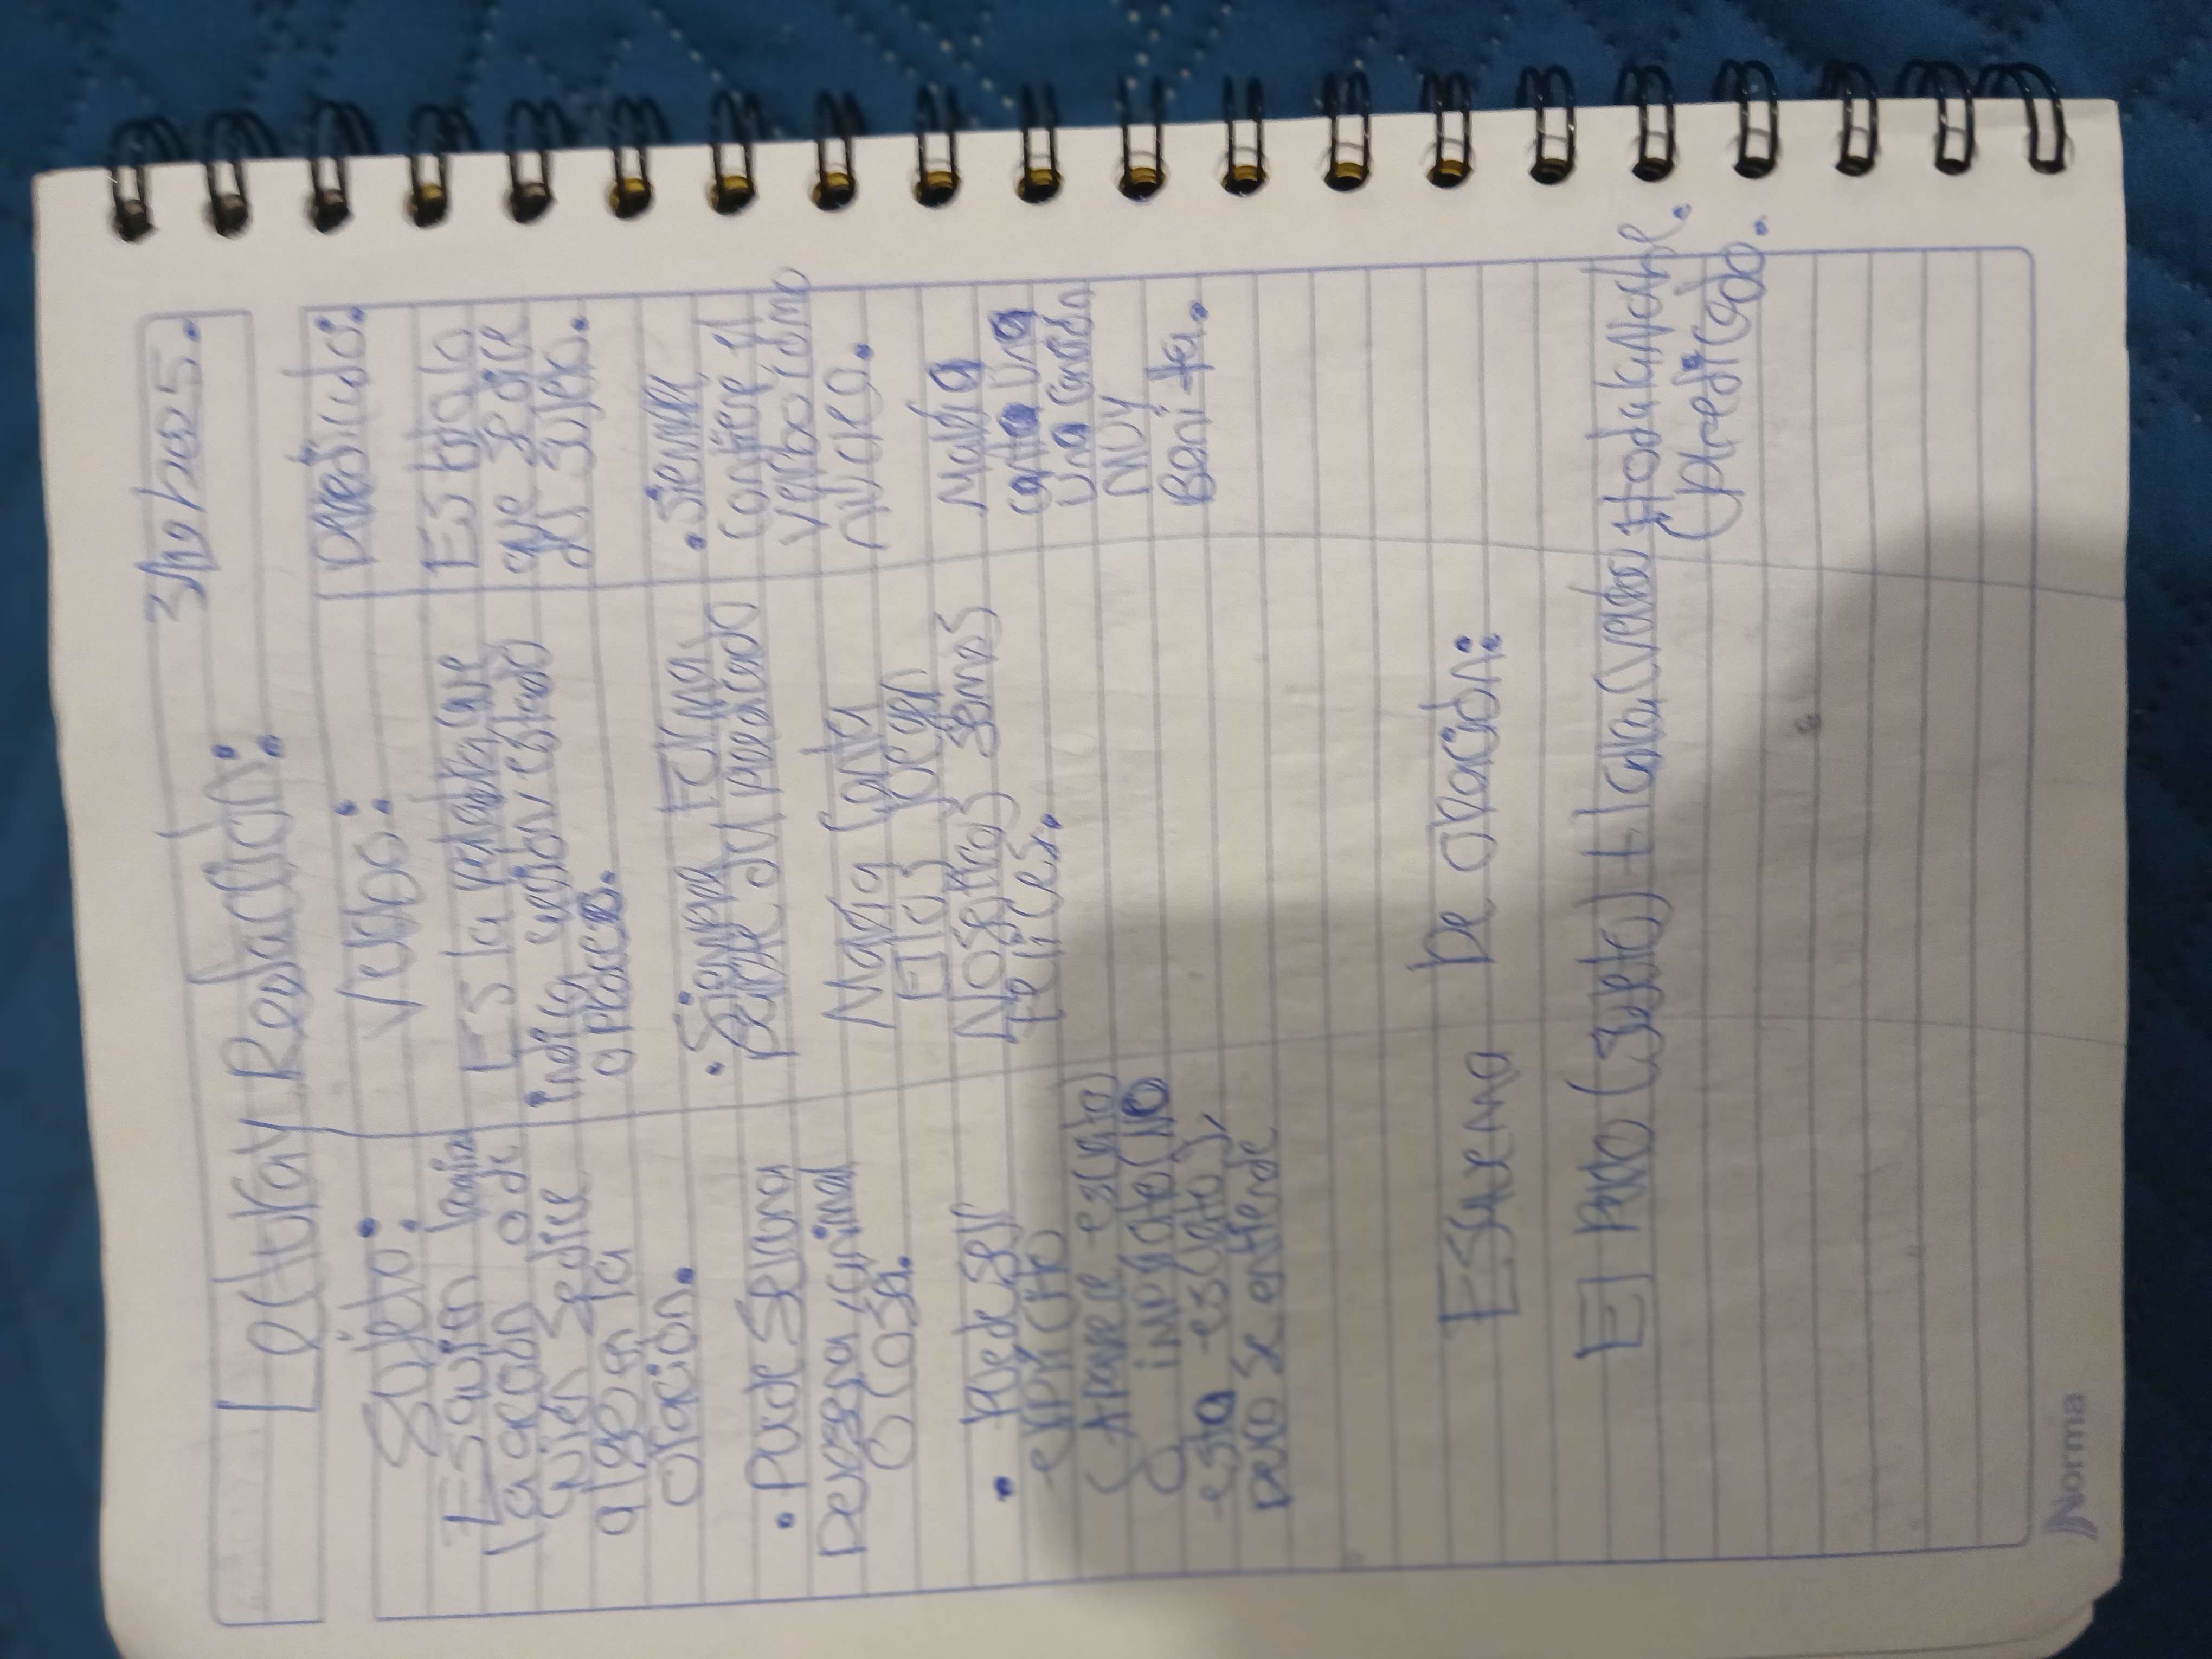 3/19/2025.
Lectura y Redacción:
Sujeto:
Es quien
la acción o de
quien se dice
algo en la
oración.
• Puede ser una
persona, animal
o cosa.
• Puede ser
explicito
(Aparece escrito)
o implicito (No
esta escrito),
pero se entiende
Verbo:
Es la palabra que
indica acción, estado
o proceso.
• Siempre Forma
parte del predicado
Maria Canta
Ellos juegan
Nosotros somos
Felices.
Predicado:
Es todo lo
que se dice
del sujeto.
• Siempre
contiene el
verbo como
núcleo.
Maria
canta una
una canción
muy
Bonita.
Esquema De oración:
El Perro (Sujeto) + ladra (verbo) + toda la Noche.
(predicado.
Norma